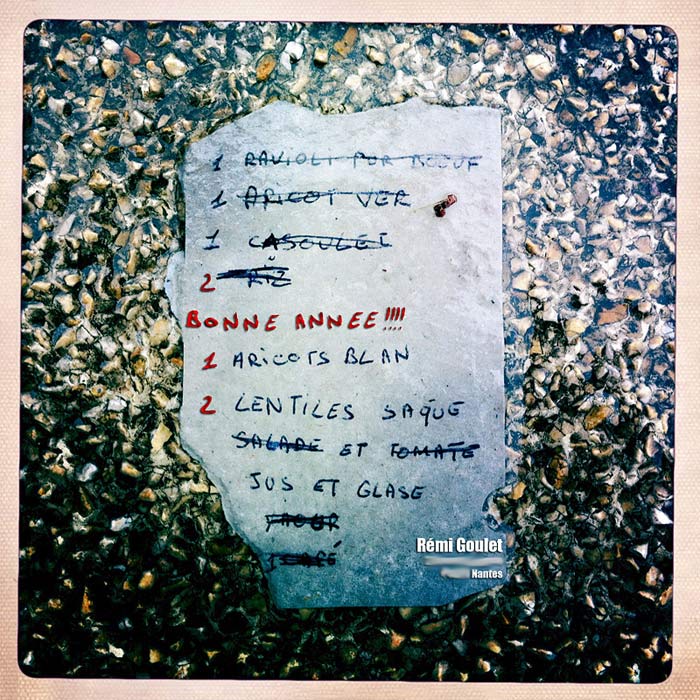 1 RAVIOLI PUR BOEUF
1 ARICOT VER
1 CASOULET
2 RIZ
BONNE ANNEE!!!!
1 ARICOTS BLAN
2 LENTILES SAQUE
SALADE ET TOMATE
JUS ET GLASE
1 CAFÉ
Rémi Goulet
Nantes